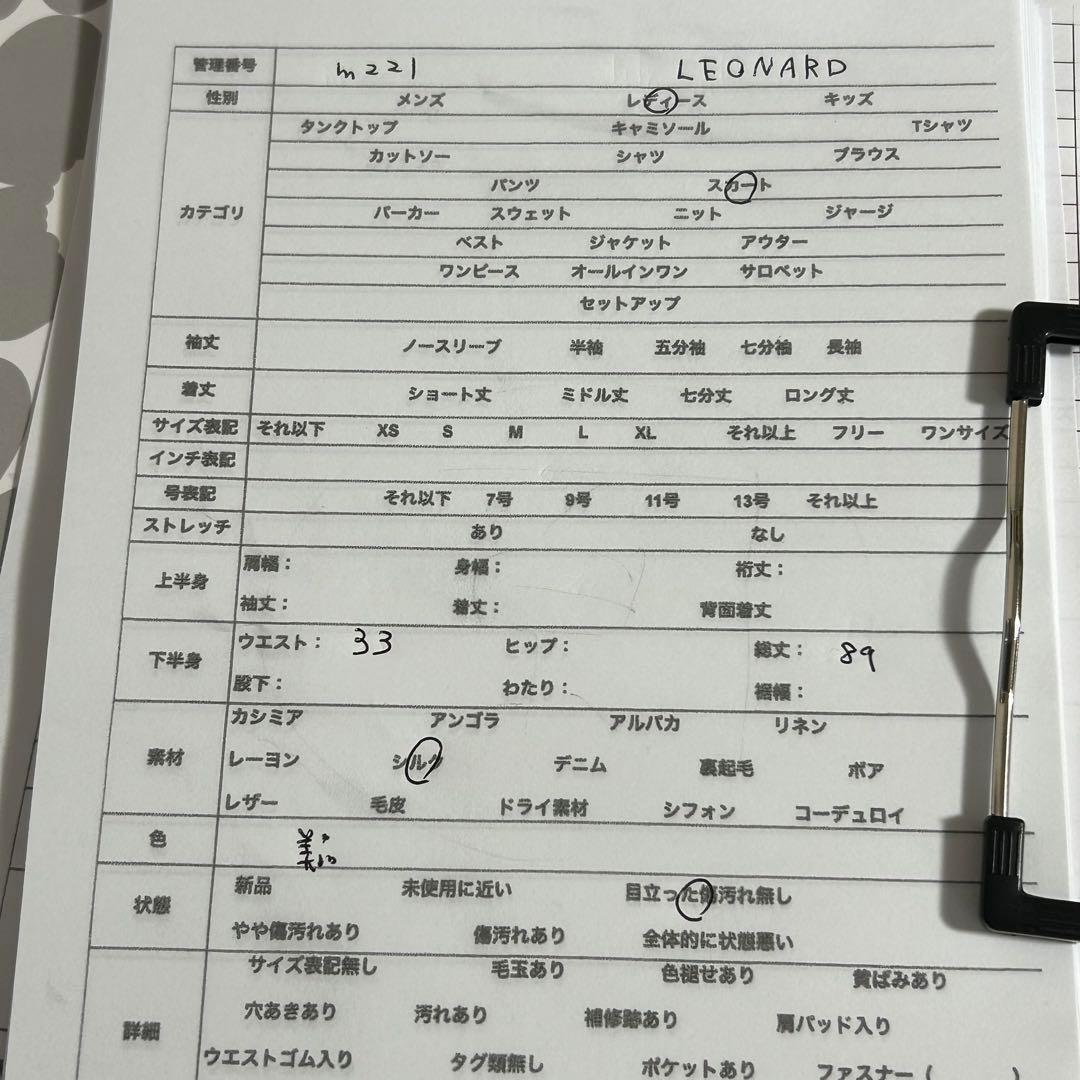 管理番号 m221 LEONARD
性別 メンズ レディース キッズ
タンクトップ キャミソール Tシャツ
カットソー シャツ ブラウス
パンツ スカート
カテゴリ パーカー スウェット ニット ジャージ
ベスト ジャケット アウター
ワンピース オールインワン サロペット
セットアップ
袖丈 ノースリーブ 半袖 五分袖 七分袖 長袖
着丈 ショート丈 ミドル丈 七分丈 ロング丈
サイズ表記 それ以下 XS S M L XL それ以上 フリー ワンサイズ
インチ表記
号表記 それ以下 7号 9号 11号 13号 それ以上
ストレッチ あり なし
上半身 肩幅： 身幅： 裄丈：
袖丈： 着丈： 背面着丈
下半身 ウエスト： 33 ヒップ： 総丈： 89
股下： わたり： 裾幅：
カシミア アンゴラ アルパカ リネン
素材 レーヨン シルク デニム 裏起毛 ボア
レザー 毛皮 ドライ素材 シフォン コーデュロイ
色
状態 新品 未使用に近い 目立った傷汚れ無し
やや傷汚れあり 傷汚れあり 全体的に状態悪い
サイズ表記無し 毛玉あり 色褪せあり 黄ばみあり
詳細 穴あきあり 汚れあり 補修跡あり 肩パッド入り
ウエストゴム入り タグ類無し ポケットあり ファスナー（ ）